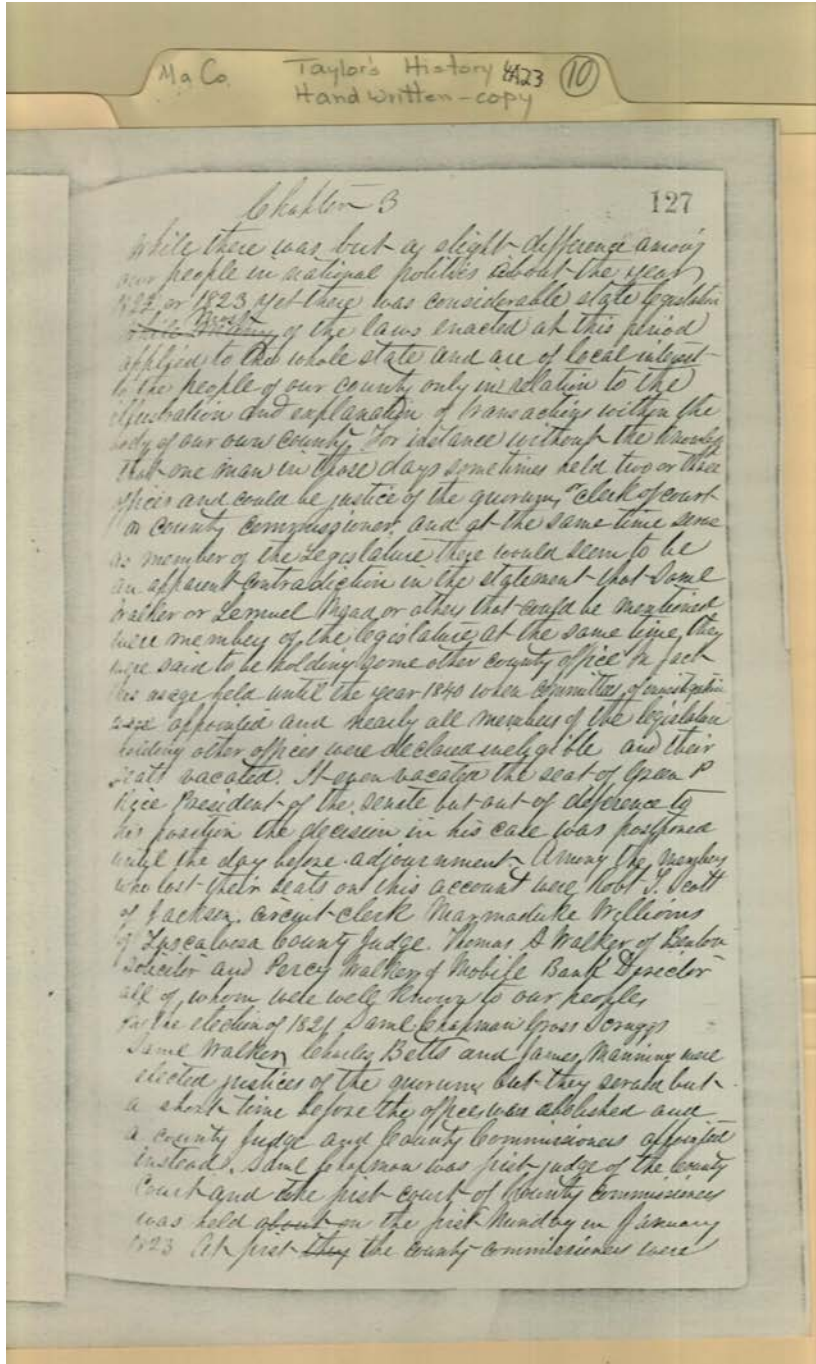 Ma Co. Taylor's History 4A23 10
Handwritten-copy
Chapter 3 127
While there was but a slight difference among
our people in national politics about the year
1822 or 1823 yet there was considerable state legislation
while many Most of the laws enacted at this period
applied to the whole state and are of local interest
to the people of our county only in relation to the
illustration and explanation of transactions within the
body of our own county. For instance without the knowledge
that one man in those days sometimes held two or three
offices and could be justice of the quorum, or clerk of court
or county commissioner, and at the same time serve
as member of the Legislature there would seem to be
an apparent contradiction in the statement that Saml
Walker or Lemuel Mead or others that could be mentioned
were members of the legislature at the same time they
were said to be holding some other county office In fact
this usage held until the year 1840 when committees of investigation
were appointed and nearly all members of the legislature
holding other offices were declared ineligible and their
seats vacated. It even vacated the seat of Green P
Rice President of the senate but out of deference to
his position the decision in his case was postponed
until the day before adjournment. Among the members
who lost their seats on this account were Robt T. Scott
of Jackson, circuit clerk Marmaduke Williams
of Tuscaloosa County Judge. Thomas A Walker of Benton
Solicitor and Percy Walker of Mobile Bank Director
all of whom were well known to our people,
In the election of 1821 Saml Chapman Gross Scruggs
Saml Walker, Charles Betts and James Manning were
elected justices of the quorum, but they served but
a short time before the office was abolished and
a county Judge and County Commissioners appointed
instead. Saml Chapman was first judge of the County
Court and the first court of County Commissioners
was held about on the first Monday in January
1823 At first they the county commissioners were